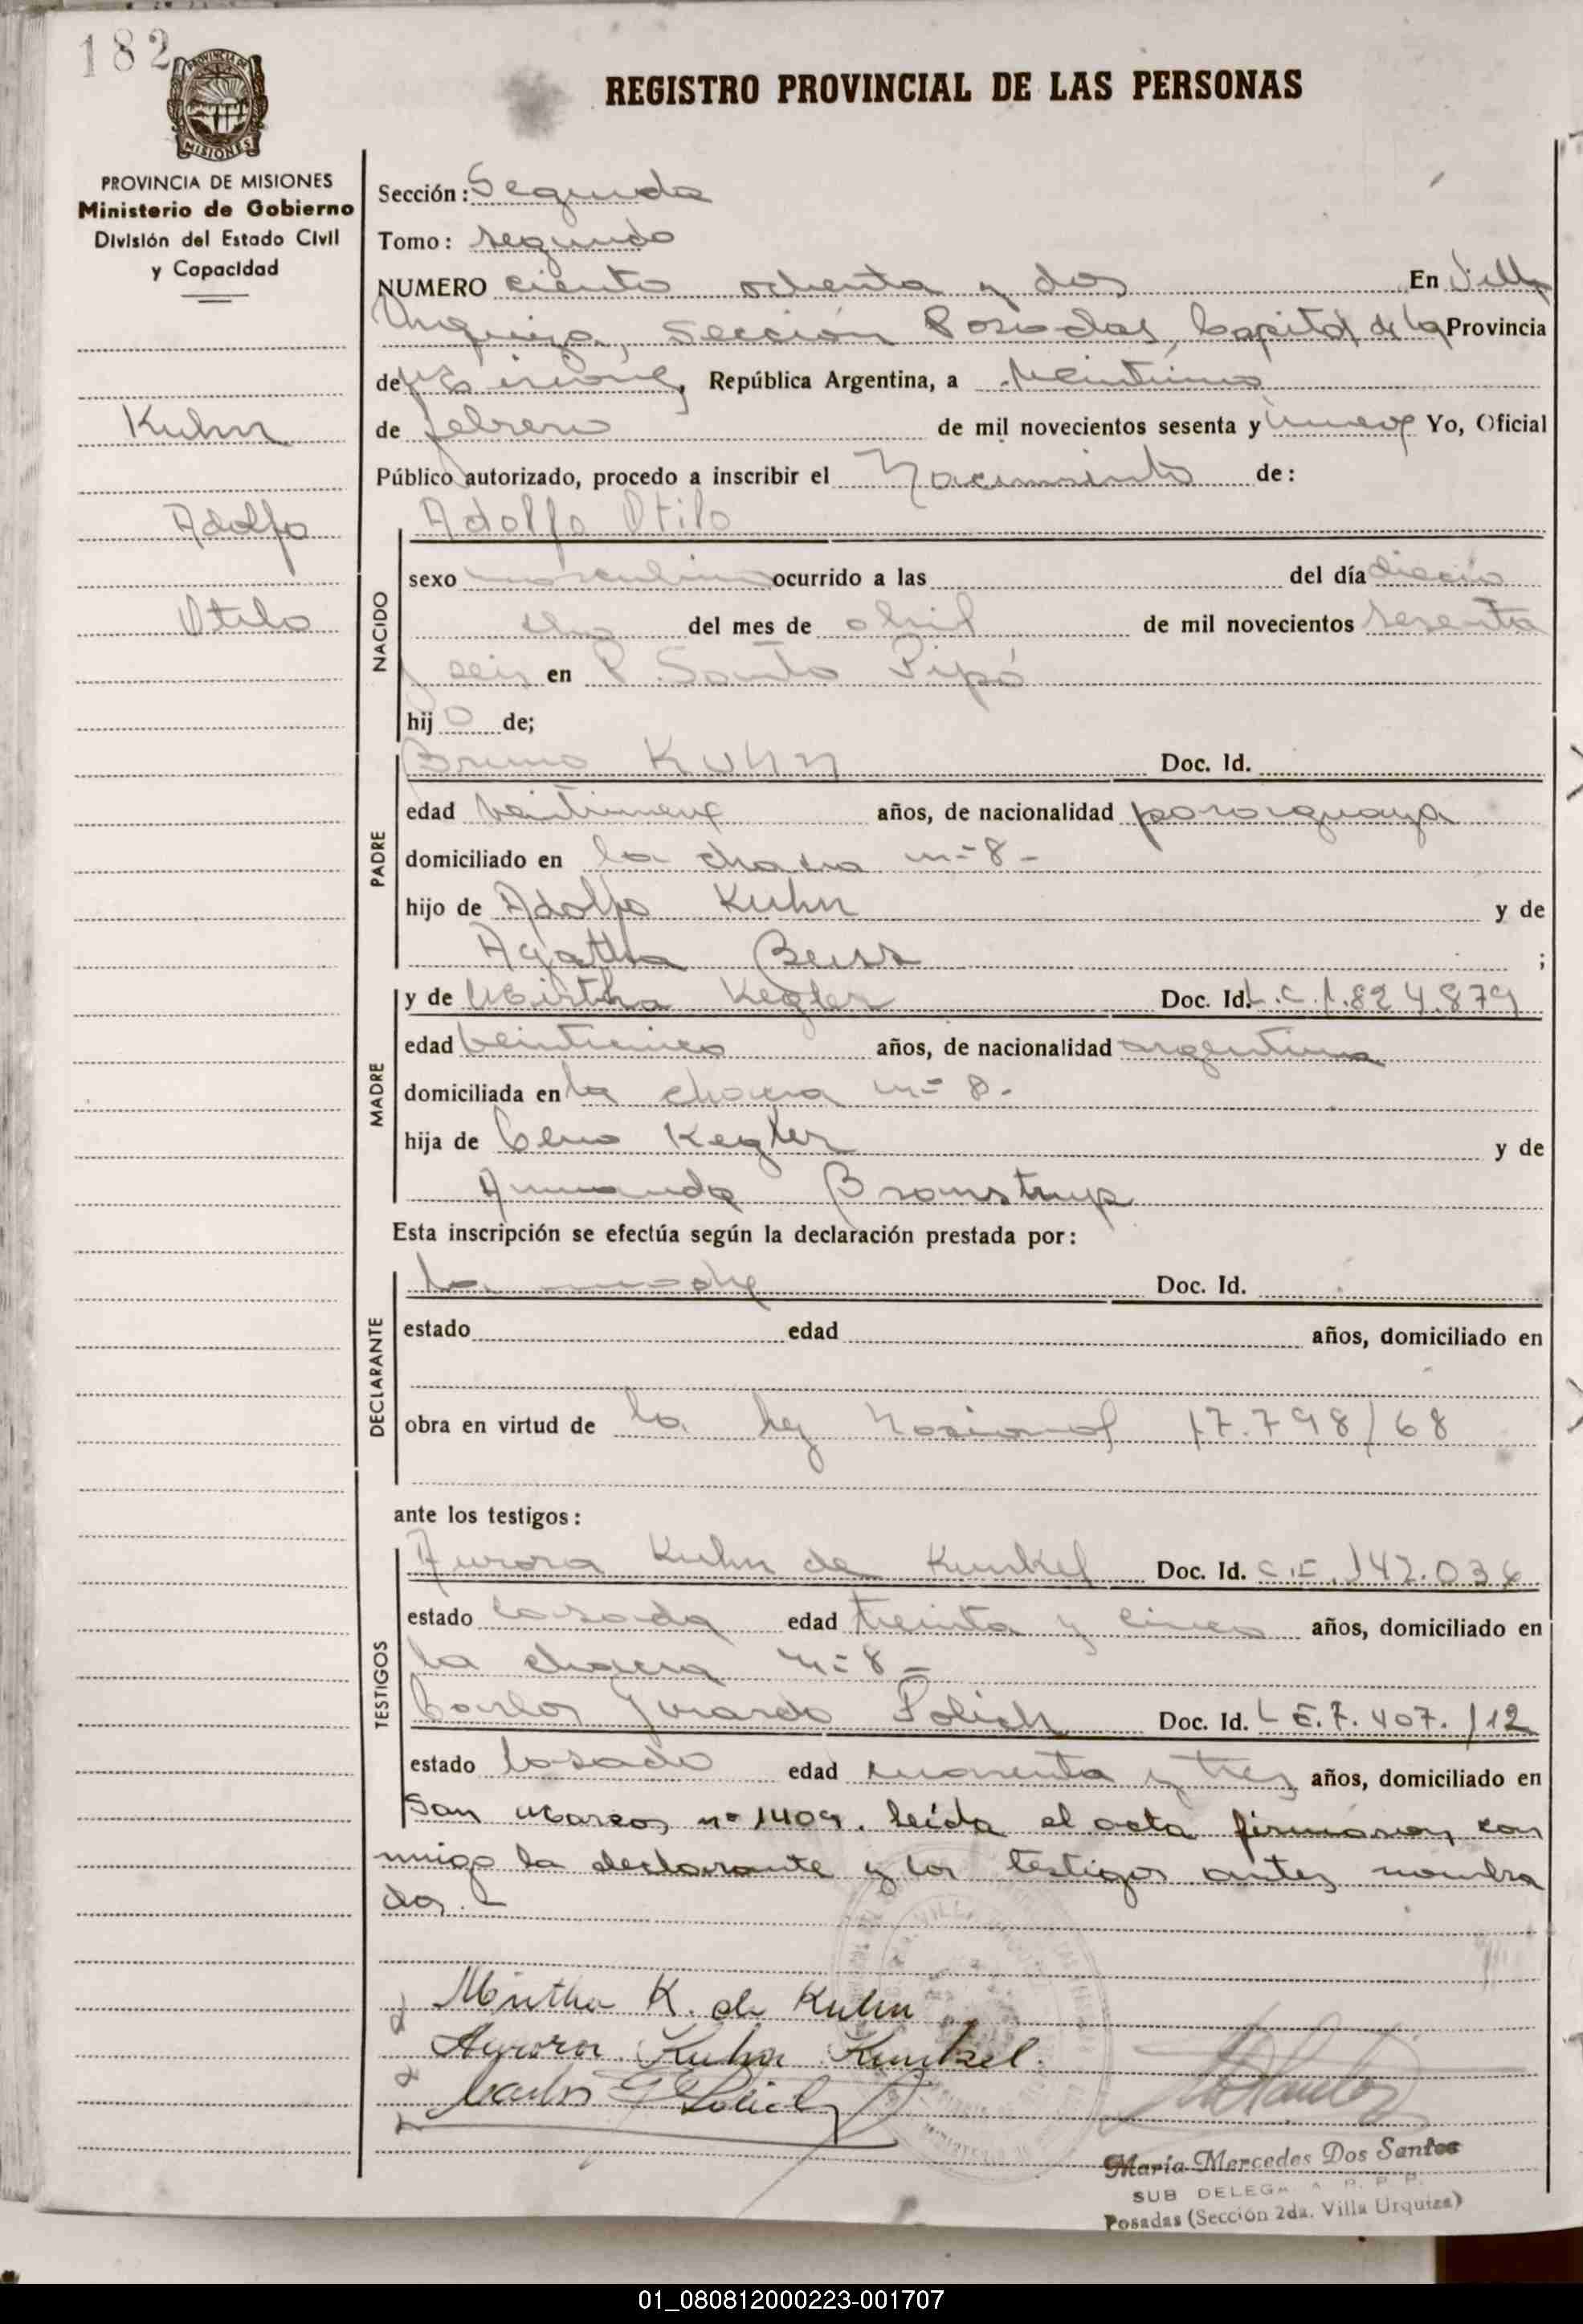 182
MISIONES
REGISTRO PROVINCIAL DE LAS PERSONAS
PROVINCIA DE MISIONES
Ministerio de Gobierno
División del Estado Civil
y Capacidad
Kuhn
Adolfo
Otilo
Sección: Segunda
Tomo: segundo
NUMERO ciento ochenta y dos En Villa
Urquiza, Sección Posadas, Capital de la Provincia
de Misiones, República Argentina, a veintiuno
de febrero de mil novecientos sesenta y nueve Yo, Oficial
Público autorizado, procedo a inscribir el Nacimiento de:
Adolfo Otilo
NACIDO
sexo masculino ocurrido a las del día dieci
ocho del mes de abril de mil novecientos sesenta
y seis en P. Santo Pipó
hijo de;
PADRE
Bruno Kuhn Doc. Id.
edad veintinueve años, de nacionalidad paraguaya
domiciliado en la chacra n=8-
hijo de Adolfo Kuhn y de
Agatha ;
MADRE
y de Mirtha Kegler Doc. Id. L.C.1.824.879
edad veinticinco años, de nacionalidad argentina
domiciliada en la chacra n=8-
hija de Kegler y de
Esta inscripción se efectúa según la declaración prestada por:
DECLARANTE
la madre Doc. Id.
estado edad años, domiciliado en
obra en virtud de la ley Nacional 17.798/68
ante los testigos:
TESTIGOS
Aurora Kuhn de Kunkel Doc. Id. C.E.142.036
estado casada edad treinta y cinco años, domiciliado en
la chacra n=8-
Carlos Polich Doc. Id. L E.7.407.112
estado casado edad cuarenta y tres años, domiciliado en
San Marcos nº 1409. leída el acta firmaron con
migo la declarante y los testigos antes nombra
dos.-
Mirtha K. de Kuhn
Aurora Kuhn Kunkel.
Carlos G Polich
María Mercedes Dos Santos
SUB DELEGADA R. P. P.
Posadas (Sección 2da. Villa Urquiza)
01_080812000223-001707